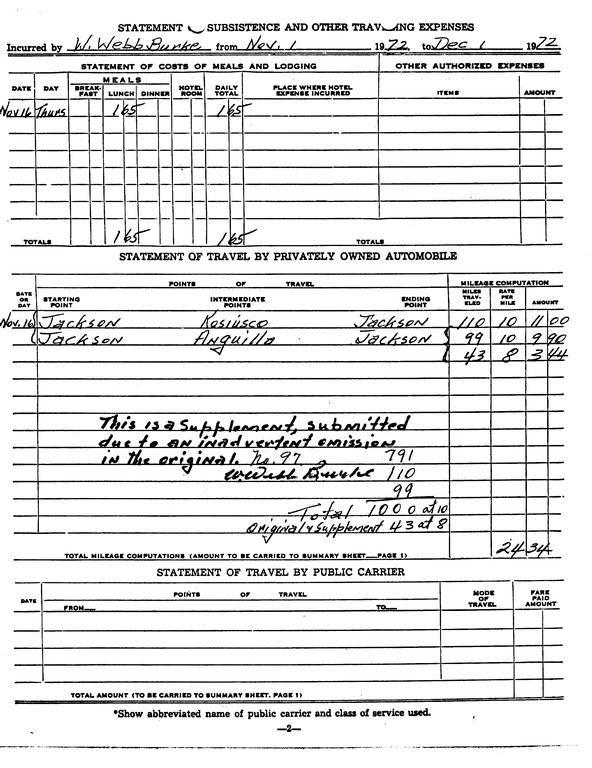 STATEMENT SUBSISTENCE AND OTHER TRAVELING EXPENSES
Incurred by W. Webb Burke from Nov. 1 1972, to Dec 1 1972
STATEMENT OF COSTS OF MEALS AND LODGING OTHER AUTHORIZED EXPENSES
DATE DAY MEALS BREAK-FAST LUNCH DINNER HOTEL ROOM DAILY TOTAL PLACE WHERE HOTEL EXPENSE INCURRED ITEMS AMOUNT
Nov 16 Thurs 1 65 1 65
TOTALS 1 65 1 65 TOTALS
STATEMENT OF TRAVEL BY PRIVATELY OWNED AUTOMOBILE
DATE OR DAY POINTS OF TRAVEL MILEAGE COMPUTATION
STARTING POINT INTERMEDIATE POINTS ENDING POINT MILES TRAV-ELED RATE PER MILE AMOUNT
Nov. 16 Jackson Kosiusco Jackson 110 10 11 00
Jackson Anguilla Jackson 99 10 9 90
43 8 3 44
This is a Supplement, submitted
due to an inadvertent omission
in the original. No. 97 791
W. Webb Burke 110
99
Total 1000 at 10
Original & Supplement 43 at 8
TOTAL MILEAGE COMPUTATIONS (AMOUNT TO BE CARRIED TO SUMMARY SHEET PAGE 1) 24 34
STATEMENT OF TRAVEL BY PUBLIC CARRIER
DATE POINTS OF TRAVEL MODE OF TRAVEL FARE PAID AMOUNT
FROM TO
TOTAL AMOUNT (TO BE CARRIED TO SUMMARY SHEET, PAGE 1)
*Show abbreviated name of public carrier and class of service used.
—2—